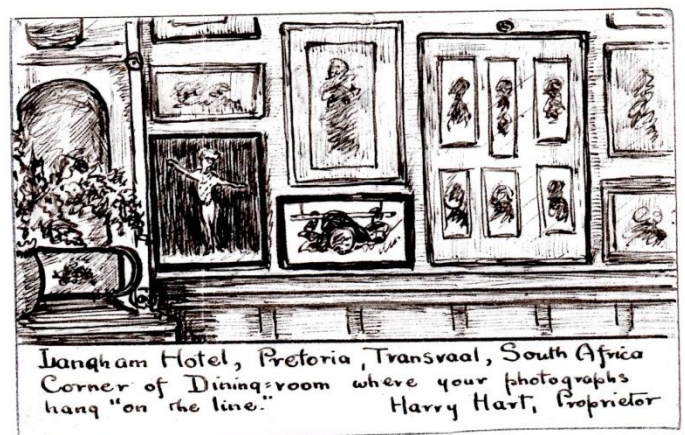 Langham Hotel, Pretoria, Transvaal, South Africa
Corner of Dining=room where your photographs
hang "on the line." Harry Hart, Proprietor